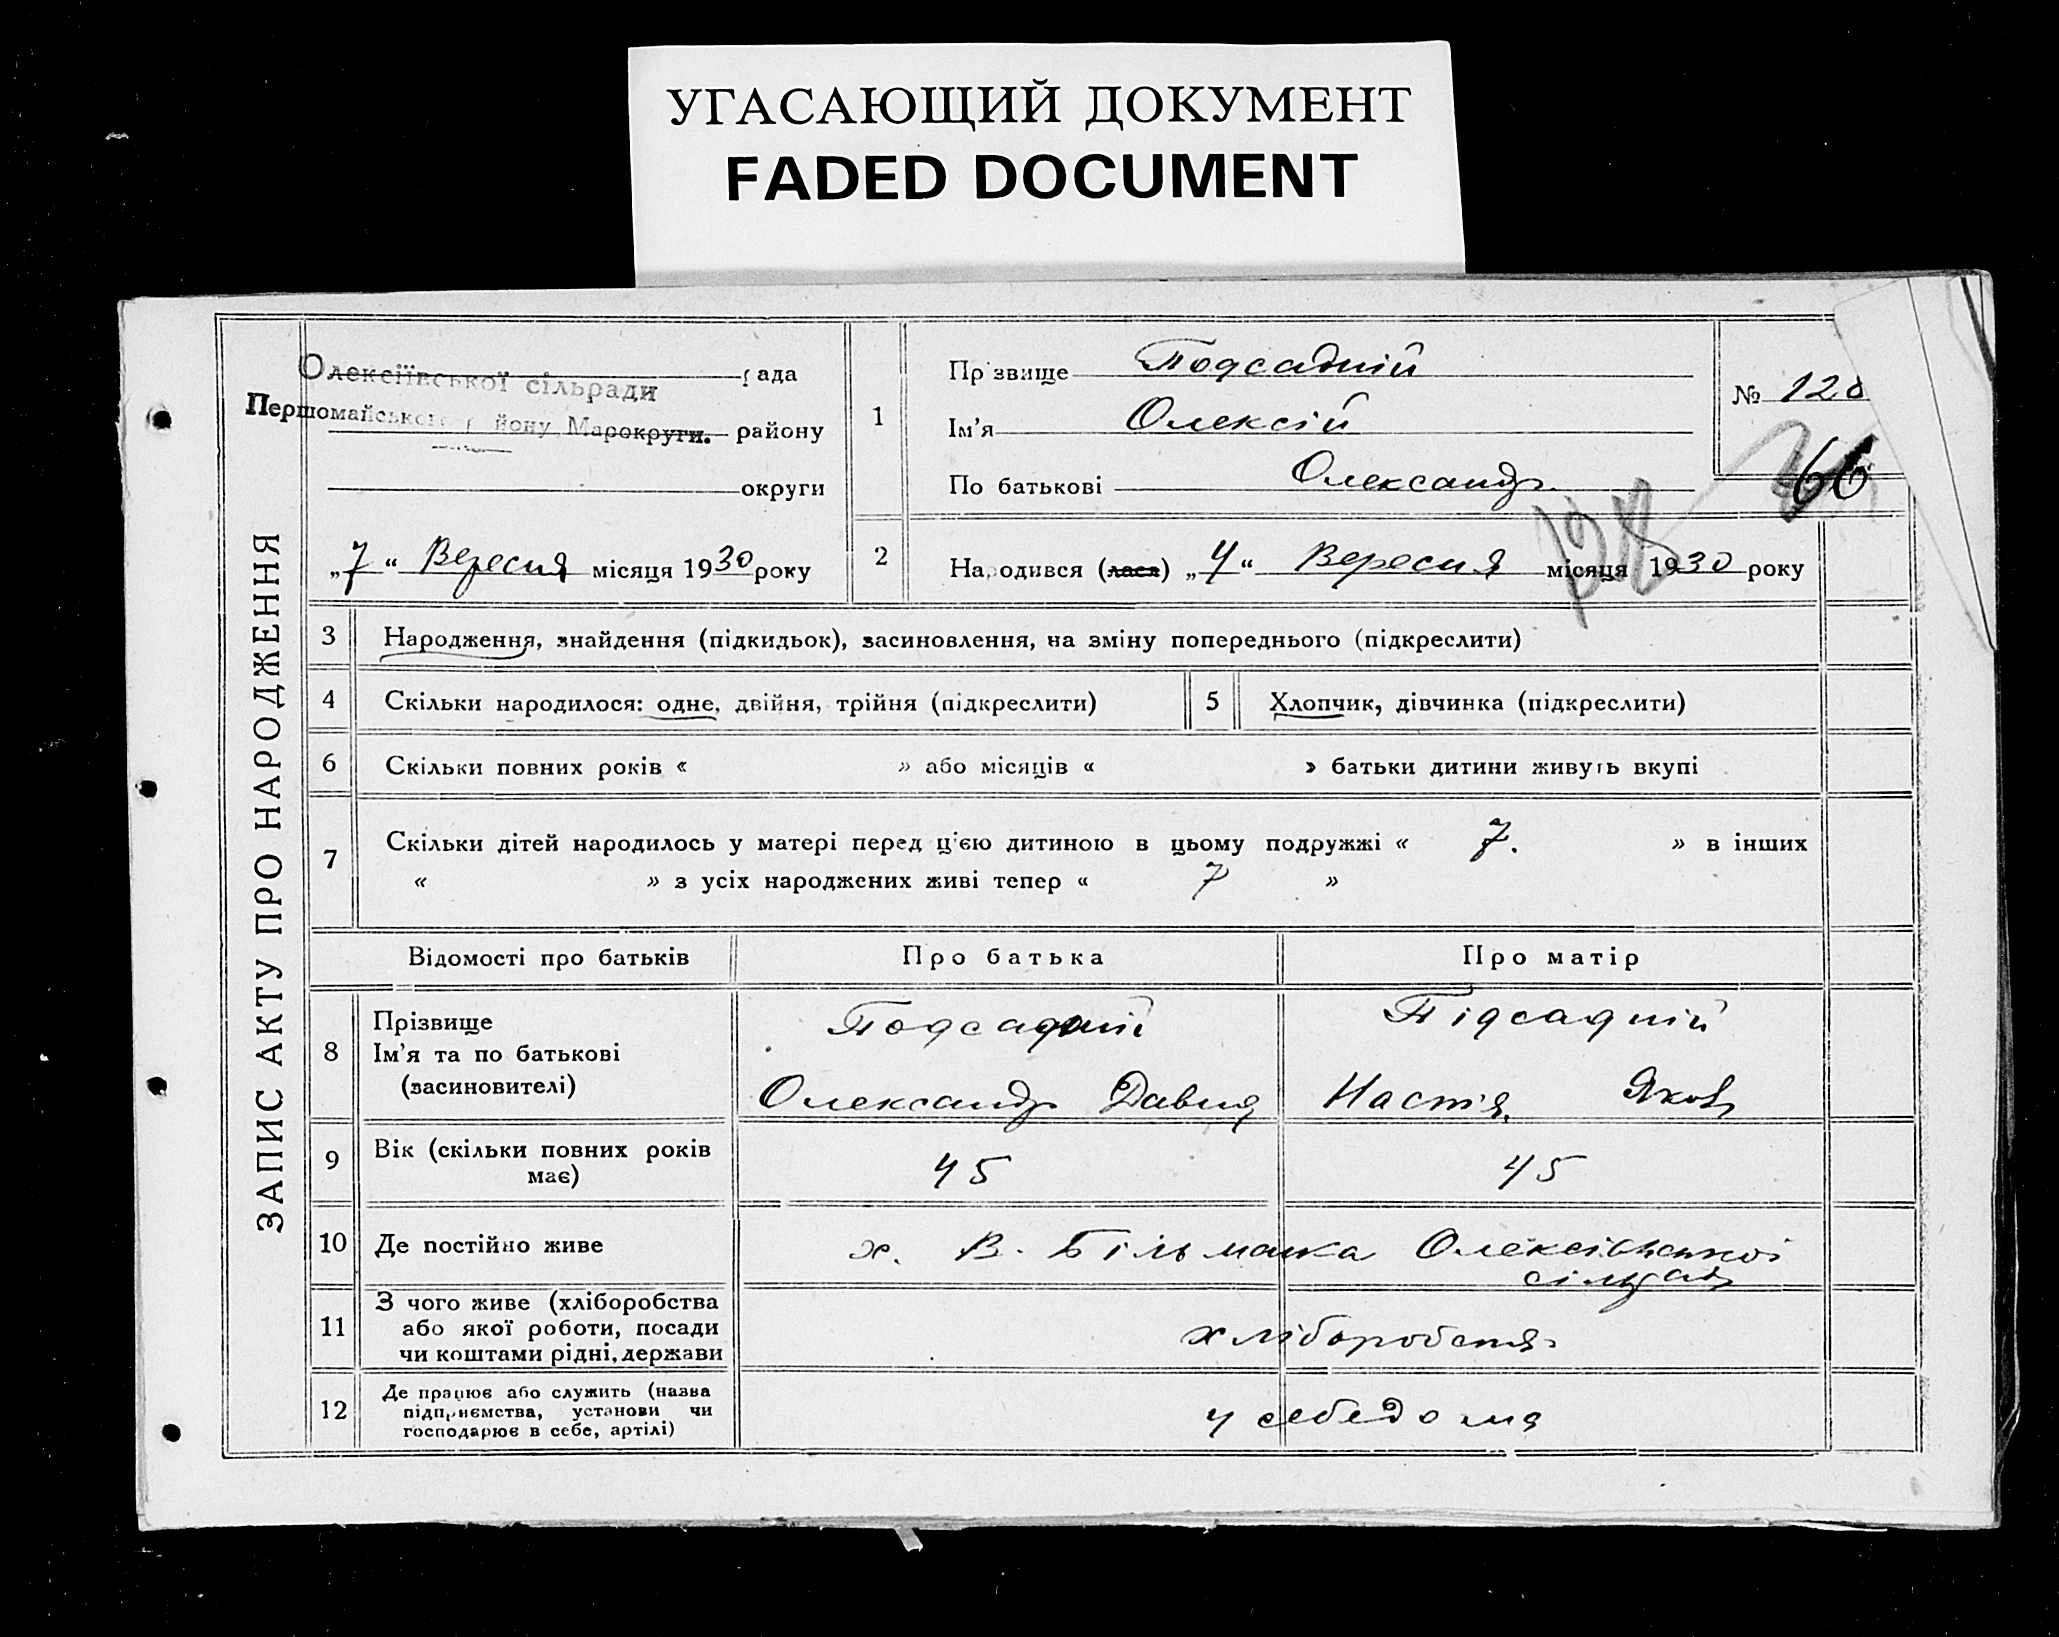 УГАСАЮЩИЙ ДОКУМЕНТ
FADED DOCUMENT
ЗАПИС АКТУ ПРО НАРОДЖЕННЯ
Олексіївської сільради рада
Першомайського району, Марокруги. району
округи
„7“ Вересня місяця 1930 року
1
Прізвище Подсадній
Ім’я Олексій
По батькові Олександр.
№ 128
66
128
2 Народився (лася) „4“ Вересня місяця 1930 року
3 Народження, знайдення (підкидьок), засиновлення, на зміну попереднього (підкреслити)
4 Скільки народилося: одне, двійня, трійня (підкреслити) 5 Хлопчик, дівчинка (підкреслити)
6 Скільки повних років « » або місяців « » батьки дитини живуть вкупі
7 Скільки дітей народилось у матері перед цією дитиною в цьому подружжі « 7. » в інших
« » з усіх народжених живі тепер « 7 »
Відомості про батьків Про батька Про матір
8 Прізвище Подсадній Підсадній
Ім’я та по батькові
(засиновителі) Олександр Давид Настя Яков
9 Вік (скільки повних років має) 45 45
10 Де постійно живе х. В. Більманка Олексіївської
сільрад
11 З чого живе (хліборобства
або якої роботи, посади хліборобств
чи коштами рідні, держави
12 Де працює або служить (назва
підприємства, установи чи у себе дома
господарює в себе, артілі)